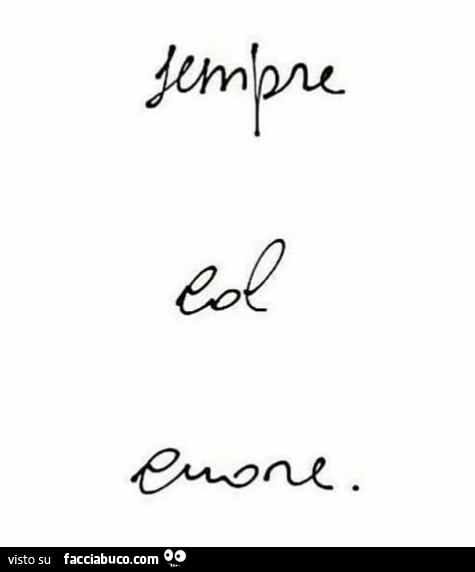 sempre
col
cuore.
visto su facciabuco.com